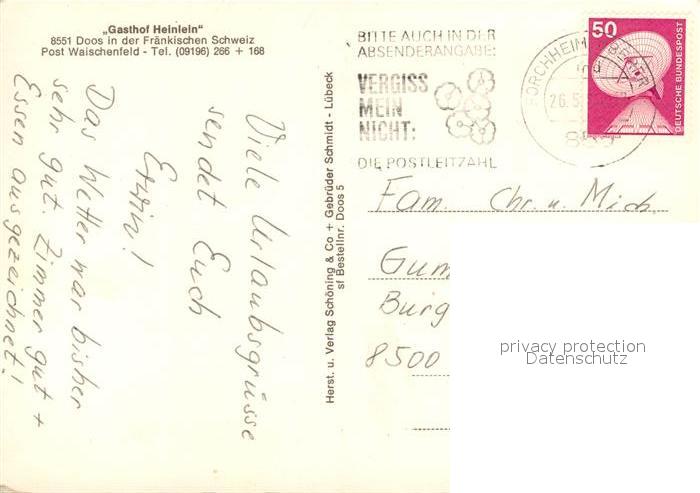 „Gasthof Heinlein"
8551 Doos in der Fränkischen Schweiz
Post Waischenfeld - Tel. (09196) 266 + 168
Viele Urlaubsgrüsse
sendet Euch
Erwin!
Das Wetter war bisher
sehr gut. Zimmer gut +
Essen ausgezeichnet!
Herst. u. Verlag Schöning & Co + Gebrüder Schmidt - Lübeck
sf Bestellnr. Doos 5
BITTE AUCH IN DER
ABSENDERANGABE:
VERGISS
MEIN
NICHT:
DIE POSTLEITZAHL
FORCHHEIM
26.5
50
DEUTSCHE BUNDESPOST
Fam. Chr. u. Mich.
Gum
Burg
8500
privacy protection
Datenschutz